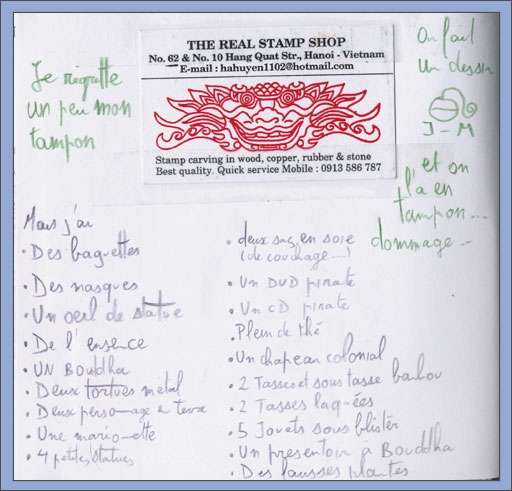 THE REAL STAMP SHOP
No. 62 & No. 10 Hang Quat Str., Hanoi - Vietnam
E-mail : hahuyen1102@hotmail.com
Stamp carving in wood, copper, rubber & stone
Best quality. Quick service Mobile : 0913 586 787
Je regrette
un peu mon
tampon
On fait
un dessin
J-M
et on
l'a en
tampon...
dommage...
Mais j'ai
• Des baguettes
• Des masques
• Un oeil de statue
• De l'ensence
• UN Bouddha
• Deux tortues métal
• Deux personnage a terre
• Une marionette
• 4 petites statues
• deux sac en soie
(de couchage...)
• Un DVD pirate
• Un CD pirate
• Plein de thé
• Un chapeau colonial
• 2 Tasses et sous tasse
• 2 Tasses laquées
• 5 Jouets sous blister
• Un presentoir à Bouddha
• Des fausses plantes